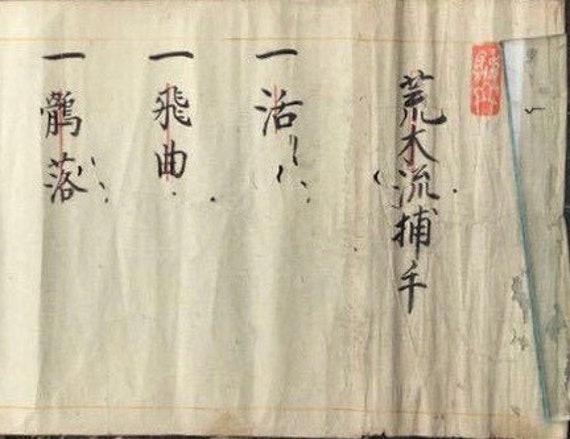 荒木流捕手
一 活
一 飛曲
一 鶻落